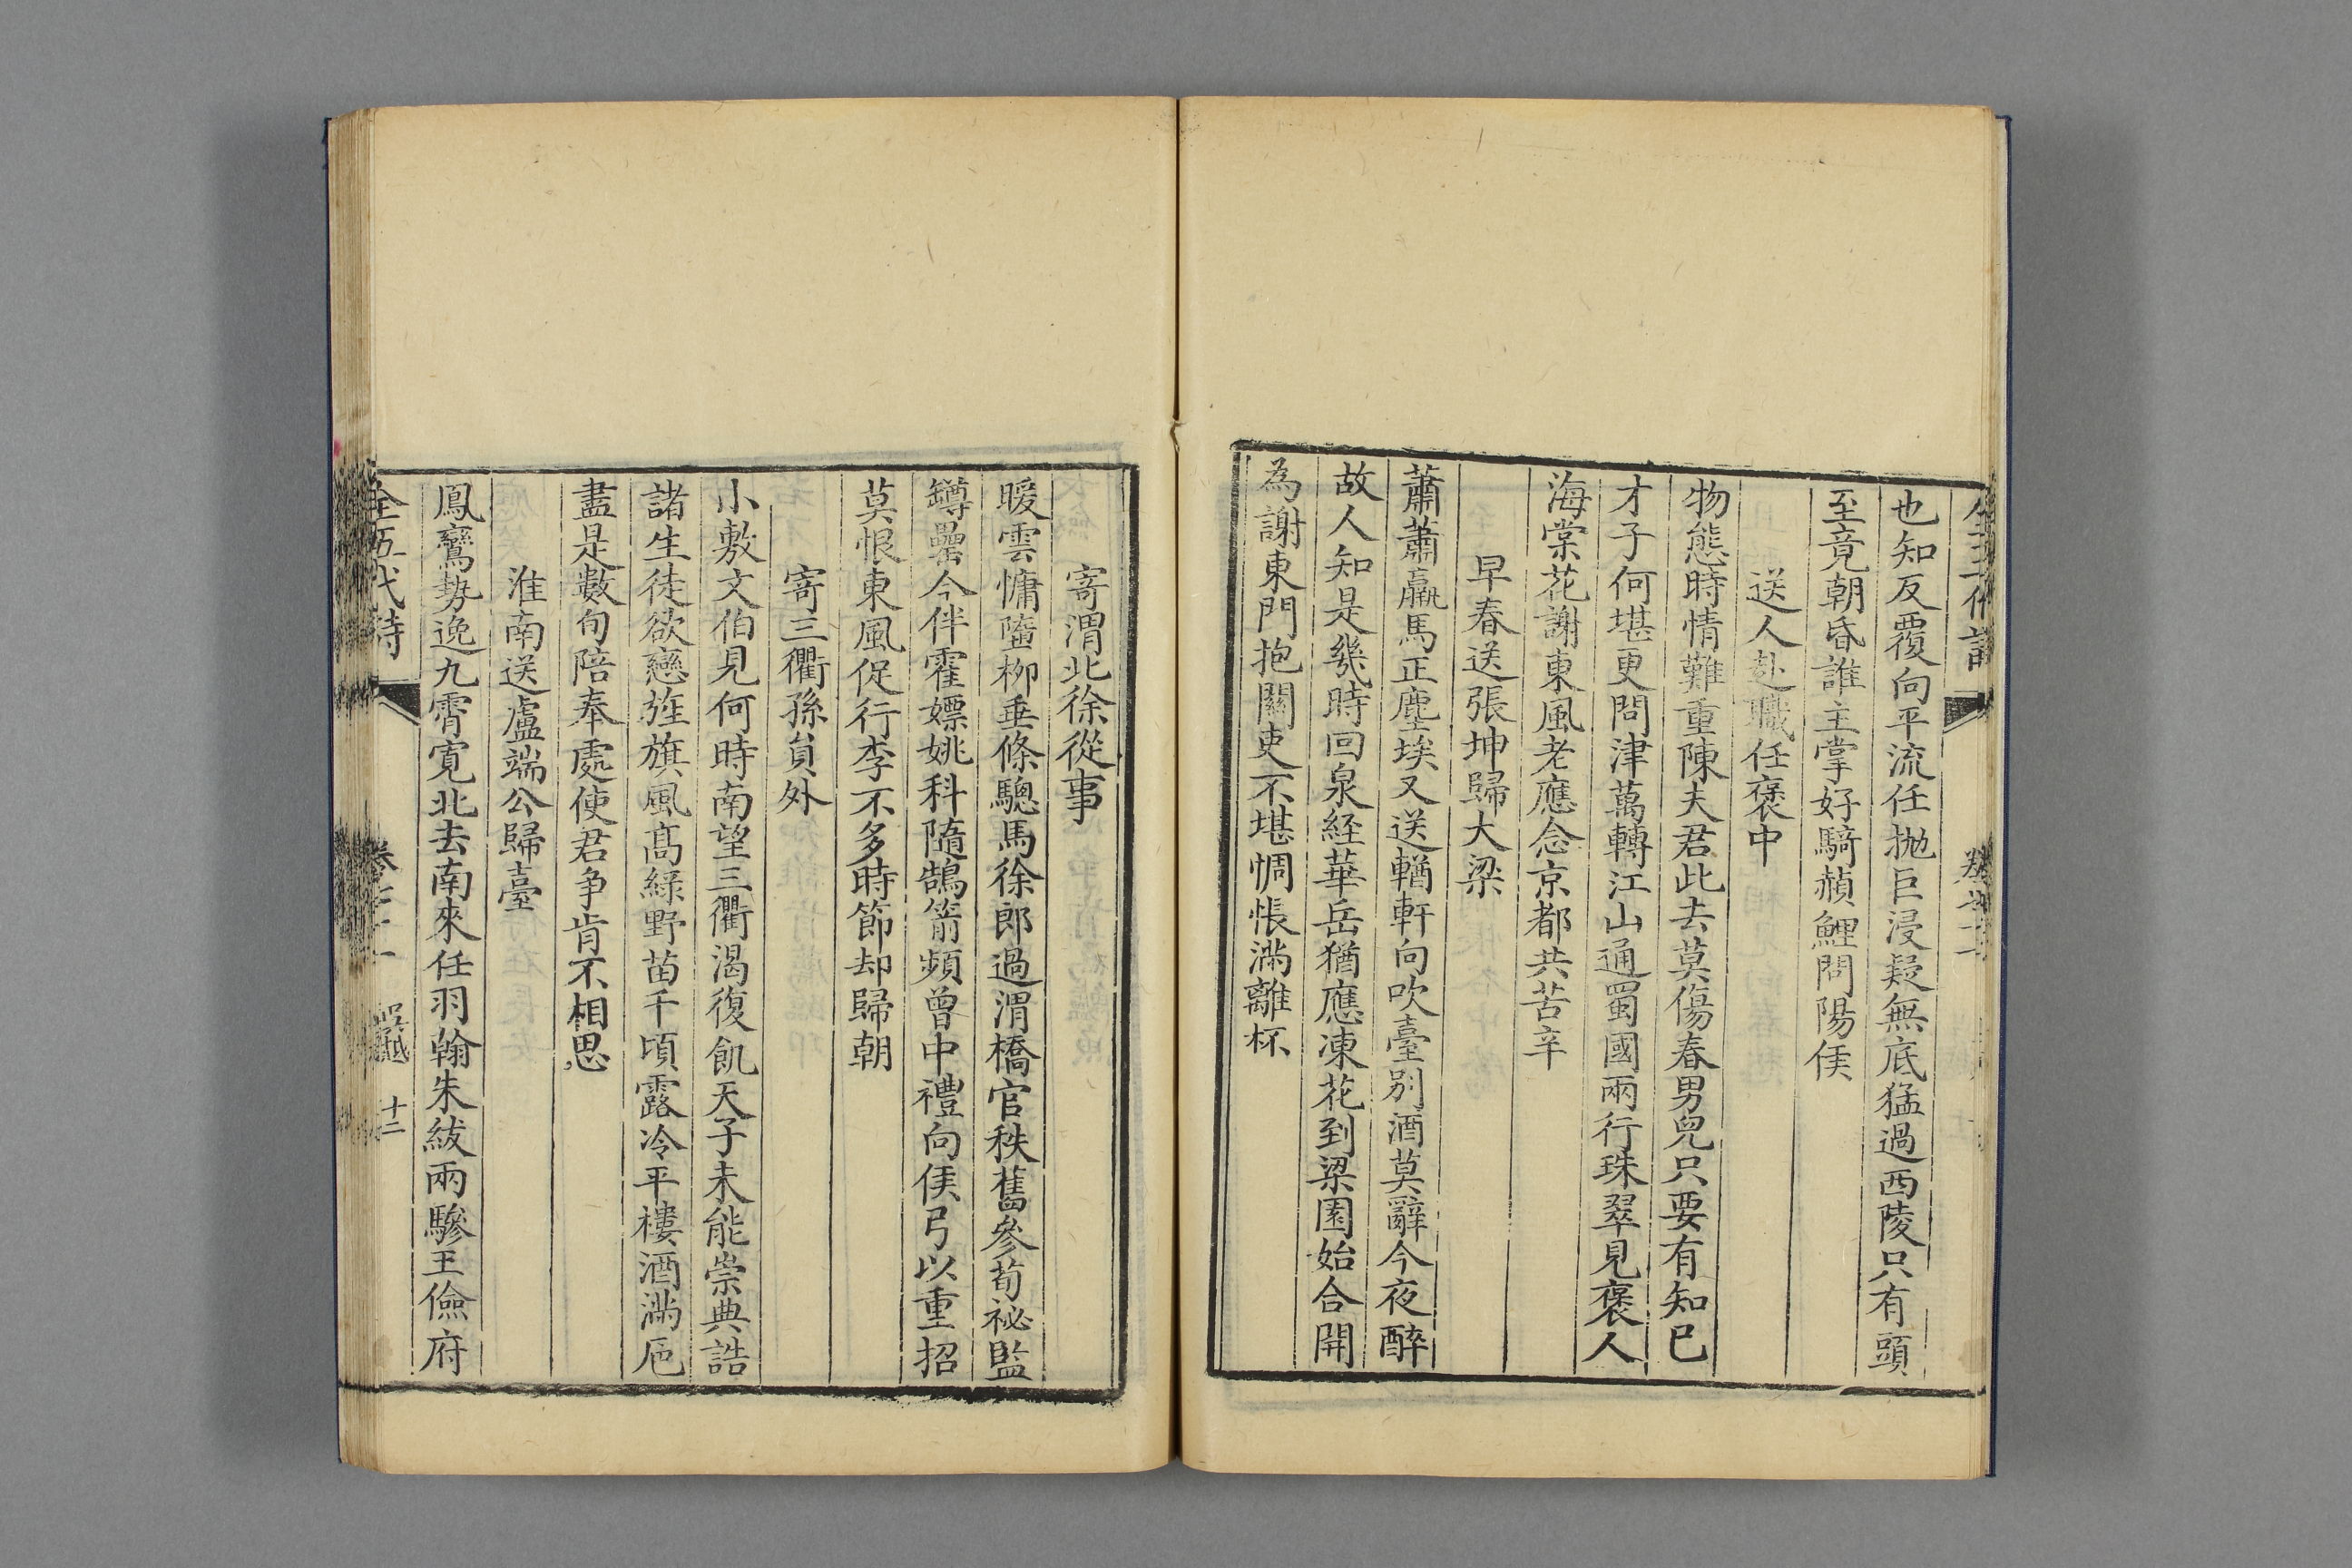 也知反覆向平流任抛巨浸疑無底猛過西陵只有頭
至竟朝昏誰主掌好騎赬鯉問陽侯
送人赴職任褒中
物態時情難重陳夫君此去莫傷春男兒只要有知已
才子何堪更問津萬轉江山通蜀國兩行珠翠見褒人
海棠花謝東風老應念京都共苦辛
早春送張坤歸大梁
蕭蕭羸馬正塵埃又送輶軒向吹臺別酒莫辭今夜醉
故人知是幾時回泉經華岳猶應凍花到梁園始合開
為謝東門抱關吏不堪惆悵滿離杯
寄渭北徐從事
暖雲慵墮柳垂條驄馬徐郎過渭橋官秩舊參荀祕監
罇罍今伴霍嫖姚科隨鵠箭頻曾中禮向侯弓以重招
莫恨東風促行李不多時節却歸朝
寄三衢孫員外
小敷文伯見何時南望三衢渴復飢天子未能崇典誥
諸生徒欲戀旌旗風高綠野苗千頃露冷平樓酒滿巵
盡是數旬陪奉處使君争肯不相思
淮南送盧端公歸臺
鳳鸞勢逸九霄寬北去南來任羽翰朱紱兩驂王儉府
全五代詩 吳越 十二